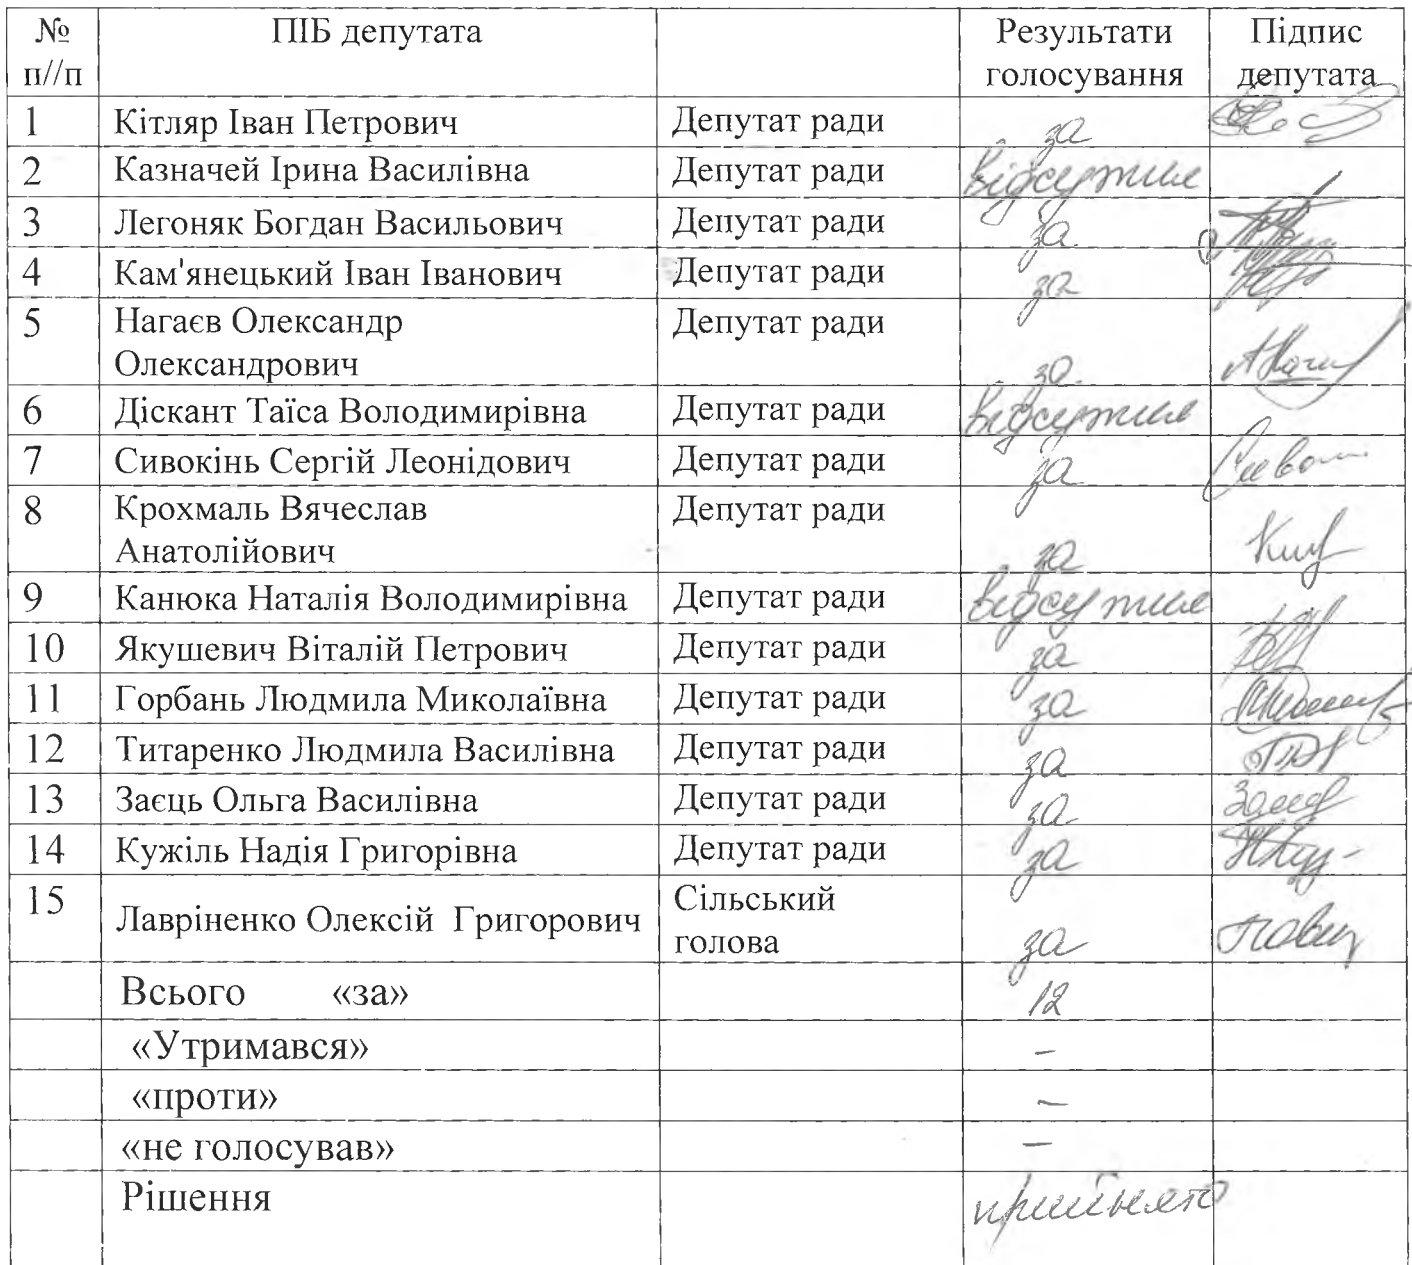 № п//п ПІБ депутата Результати голосування Підпис депутата
1 Кітляр Іван Петрович Депутат ради за
2 Казначей Ірина Василівна Депутат ради відсутня
3 Легоняк Богдан Васильович Депутат ради за
4 Кам'янецький Іван Іванович Депутат ради за
5 Нагаєв Олександр Олександрович Депутат ради за
6 Діскант Таїса Володимирівна Депутат ради відсутня
7 Сивокінь Сергій Леонідович Депутат ради за
8 Крохмаль Вячеслав Анатолійович Депутат ради за
9 Канюка Наталія Володимирівна Депутат ради відсутня
10 Якушевич Віталій Петрович Депутат ради за
11 Горбань Людмила Миколаївна Депутат ради за
12 Титаренко Людмила Василівна Депутат ради за
13 Заєць Ольга Василівна Депутат ради за
14 Кужіль Надія Григорівна Депутат ради за
15 Лавріненко Олексій Григорович Сільський голова за
Всього «за» 12
«Утримався» –
«проти» –
«не голосував» –
Рішення прийнято